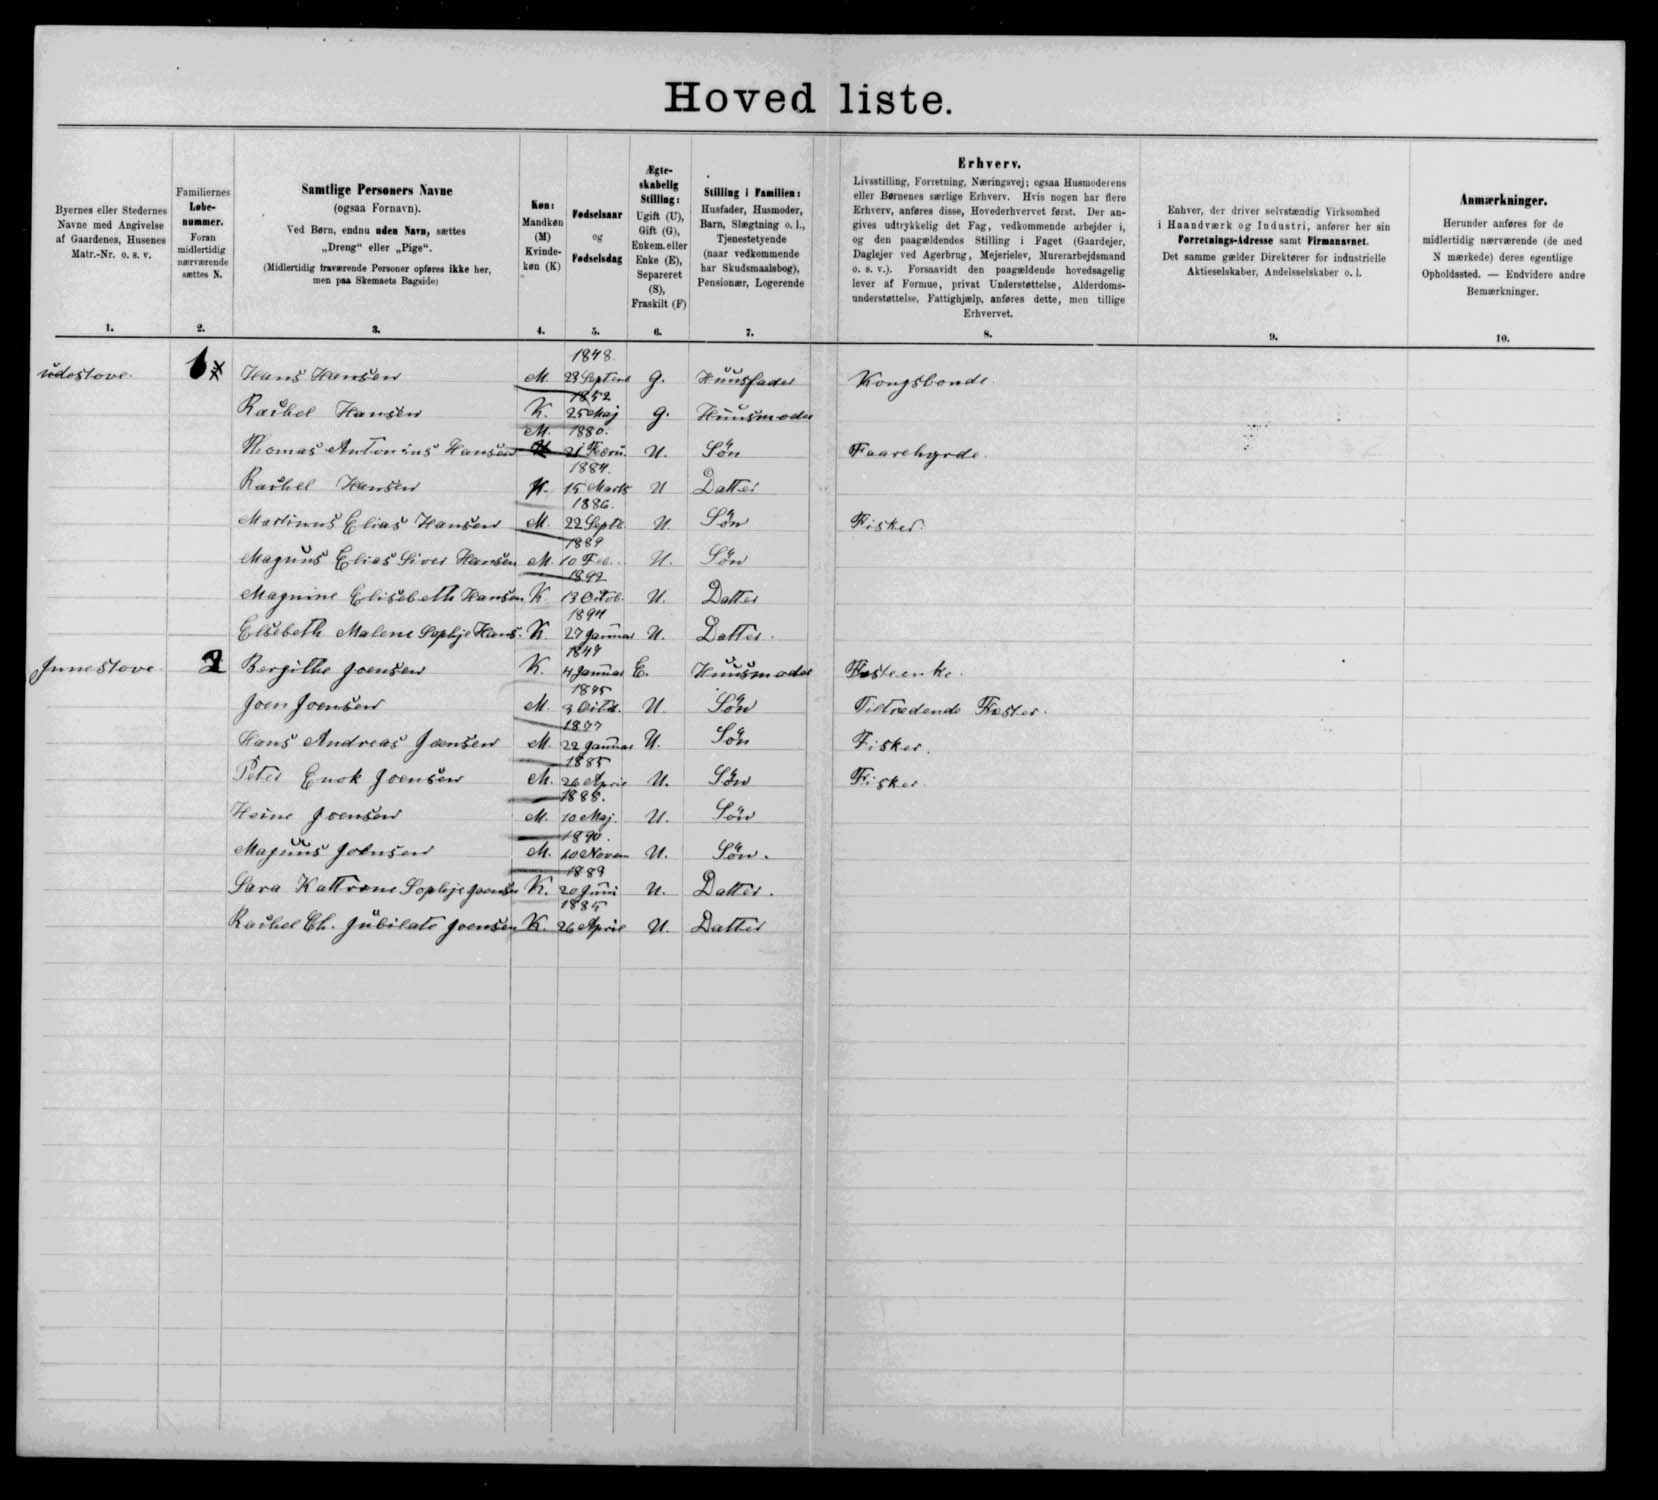 Hoved liste.
Byernes eller Stedernes
Navne med Angivelse
af Gaardenes, Husenes
Matr.-Nr. o. s. v.
1.
Familiernes
Løbe-
nummer.
Foran
midlertidig
nærværende
sættes N.
2.
Samtlige Personers Navne
(ogsaa Fornavn).
Ved Børn, endnu uden Navn, sættes
„Dreng" eller „Pige".
(Midlertidig fraværende Personer opføres ikke her,
men paa Skemaets Bagside)
3.
Køn:
Mandkøn
(M)
Kvinde-
køn (K)
4.
Fødselsaar
og
Fødselsdag
5.
Ægte-
skabelig
Stilling:
Ugift (U),
Gift (G),
Enkem.eller
Enke (E),
Separeret
(S),
Fraskilt (F)
6.
Stilling i Familien:
Husfader, Husmoder,
Barn, Slægtning o. l.,
Tjenestetyende
(naar vedkommende
har Skudsmaalsbog),
Pensionær, Logerende
7.
Erhverv.
Livsstilling, Forretning, Næringsvej; ogsaa Husmoderens
eller Børnenes særlige Erhverv. Hvis nogen har flere
Erhverv, anføres disse, Hovederhvervet først. Der an-
gives udtrykkelig det Fag, vedkommende arbejder i,
og den paagældendes Stilling i Faget (Gaardejer,
Daglejer ved Agerbrug, Mejerielev, Murerarbejdsmand
o. s. v.). Forsaavidt den paagældende hovedsagelig
lever af Formue, privat Understøttelse, Alderdoms-
understøttelse, Fattighjælp, anføres dette, men tillige
Erhvervet.
8.
Enhver, der driver selvstændig Virksomhed
i Haandværk og Industri, anfører her sin
Forretnings-Adresse samt Firmanavnet.
Det samme gælder Direktører for industrielle
Aktieselskaber, Andelsselskaber o. l.
9.
Anmærkninger.
Herunder anføres for de
midlertidig nærværende (de med
N mærkede) deres egentlige
Opholdssted. — Endvidere andre
Bemærkninger.
10.
1848.
udestove. 1 Hans Hansen M. 28 Septem G. Huusfader Kongsbonde.
1852
Rachel Hansen K. 25 Maj G. Huusmoder
M. 1880.
Thomas Antonius Hansen 21 Febru. U. Søn Faarehyrde.
1884.
Rachel Hansen K. 15 Marts U Datter
1886.
Martinus Elias Hansen M. 22 Septb. U. Søn Fisker.
1889
Magnus Elias Siver Hansen M. 10 Feb. U. Søn
1892
Magnine Elisebeth Hansen K. 13 Octob. U. Datter
1894
Elsebeth Malene Sophje Hans. K. 27 Januar U. Datter.
1849
Innestove 2 Bergithe Joensen K. 4 Januar E. Huusmoder Festeenke.
1875
Joen Joensen M. 3 Octb. U. Søn Tiltrædende Fæster.
1877
Hans Andreas Joensen M. 22 Januar U. Søn Fisker.
1885
Peter Enok Joensen M. 26 April U. Søn Fisker.
1888.
Heine Joensen M. 10 Maj. U. Søn
1890.
Magnus Joensen M. 20 Novem U. Søn.
1889
Sara Kattrine Sophje Joensen K. 20 Juni U. Datter.
1885
Rachel Eh. Jubilate Joensen K. 26 April U. Datter